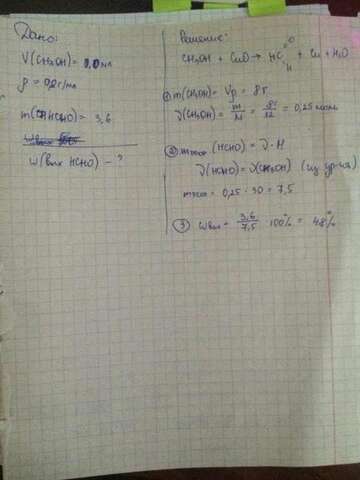 Дано:
V(CH₃OH) = 10 мл
ρ = 0,8 г/мл
m(HCHO) = 3,6
w(вых HCHO) - ?
Решение:
CH₃OH + CuO → HC
O
H
+ Cu + H₂O
① m(CH₃OH) = Vρ = 8 г
ν(CH₃OH) = m/M = 8г/32 = 0,25 моль
② m теор (HCHO) = ν·M
ν(HCHO) = ν(CH₃OH) (из ур-ия)
m теор = 0,25 · 30 = 7,5
③ w вых = 3,6/7,5 100% = 48%